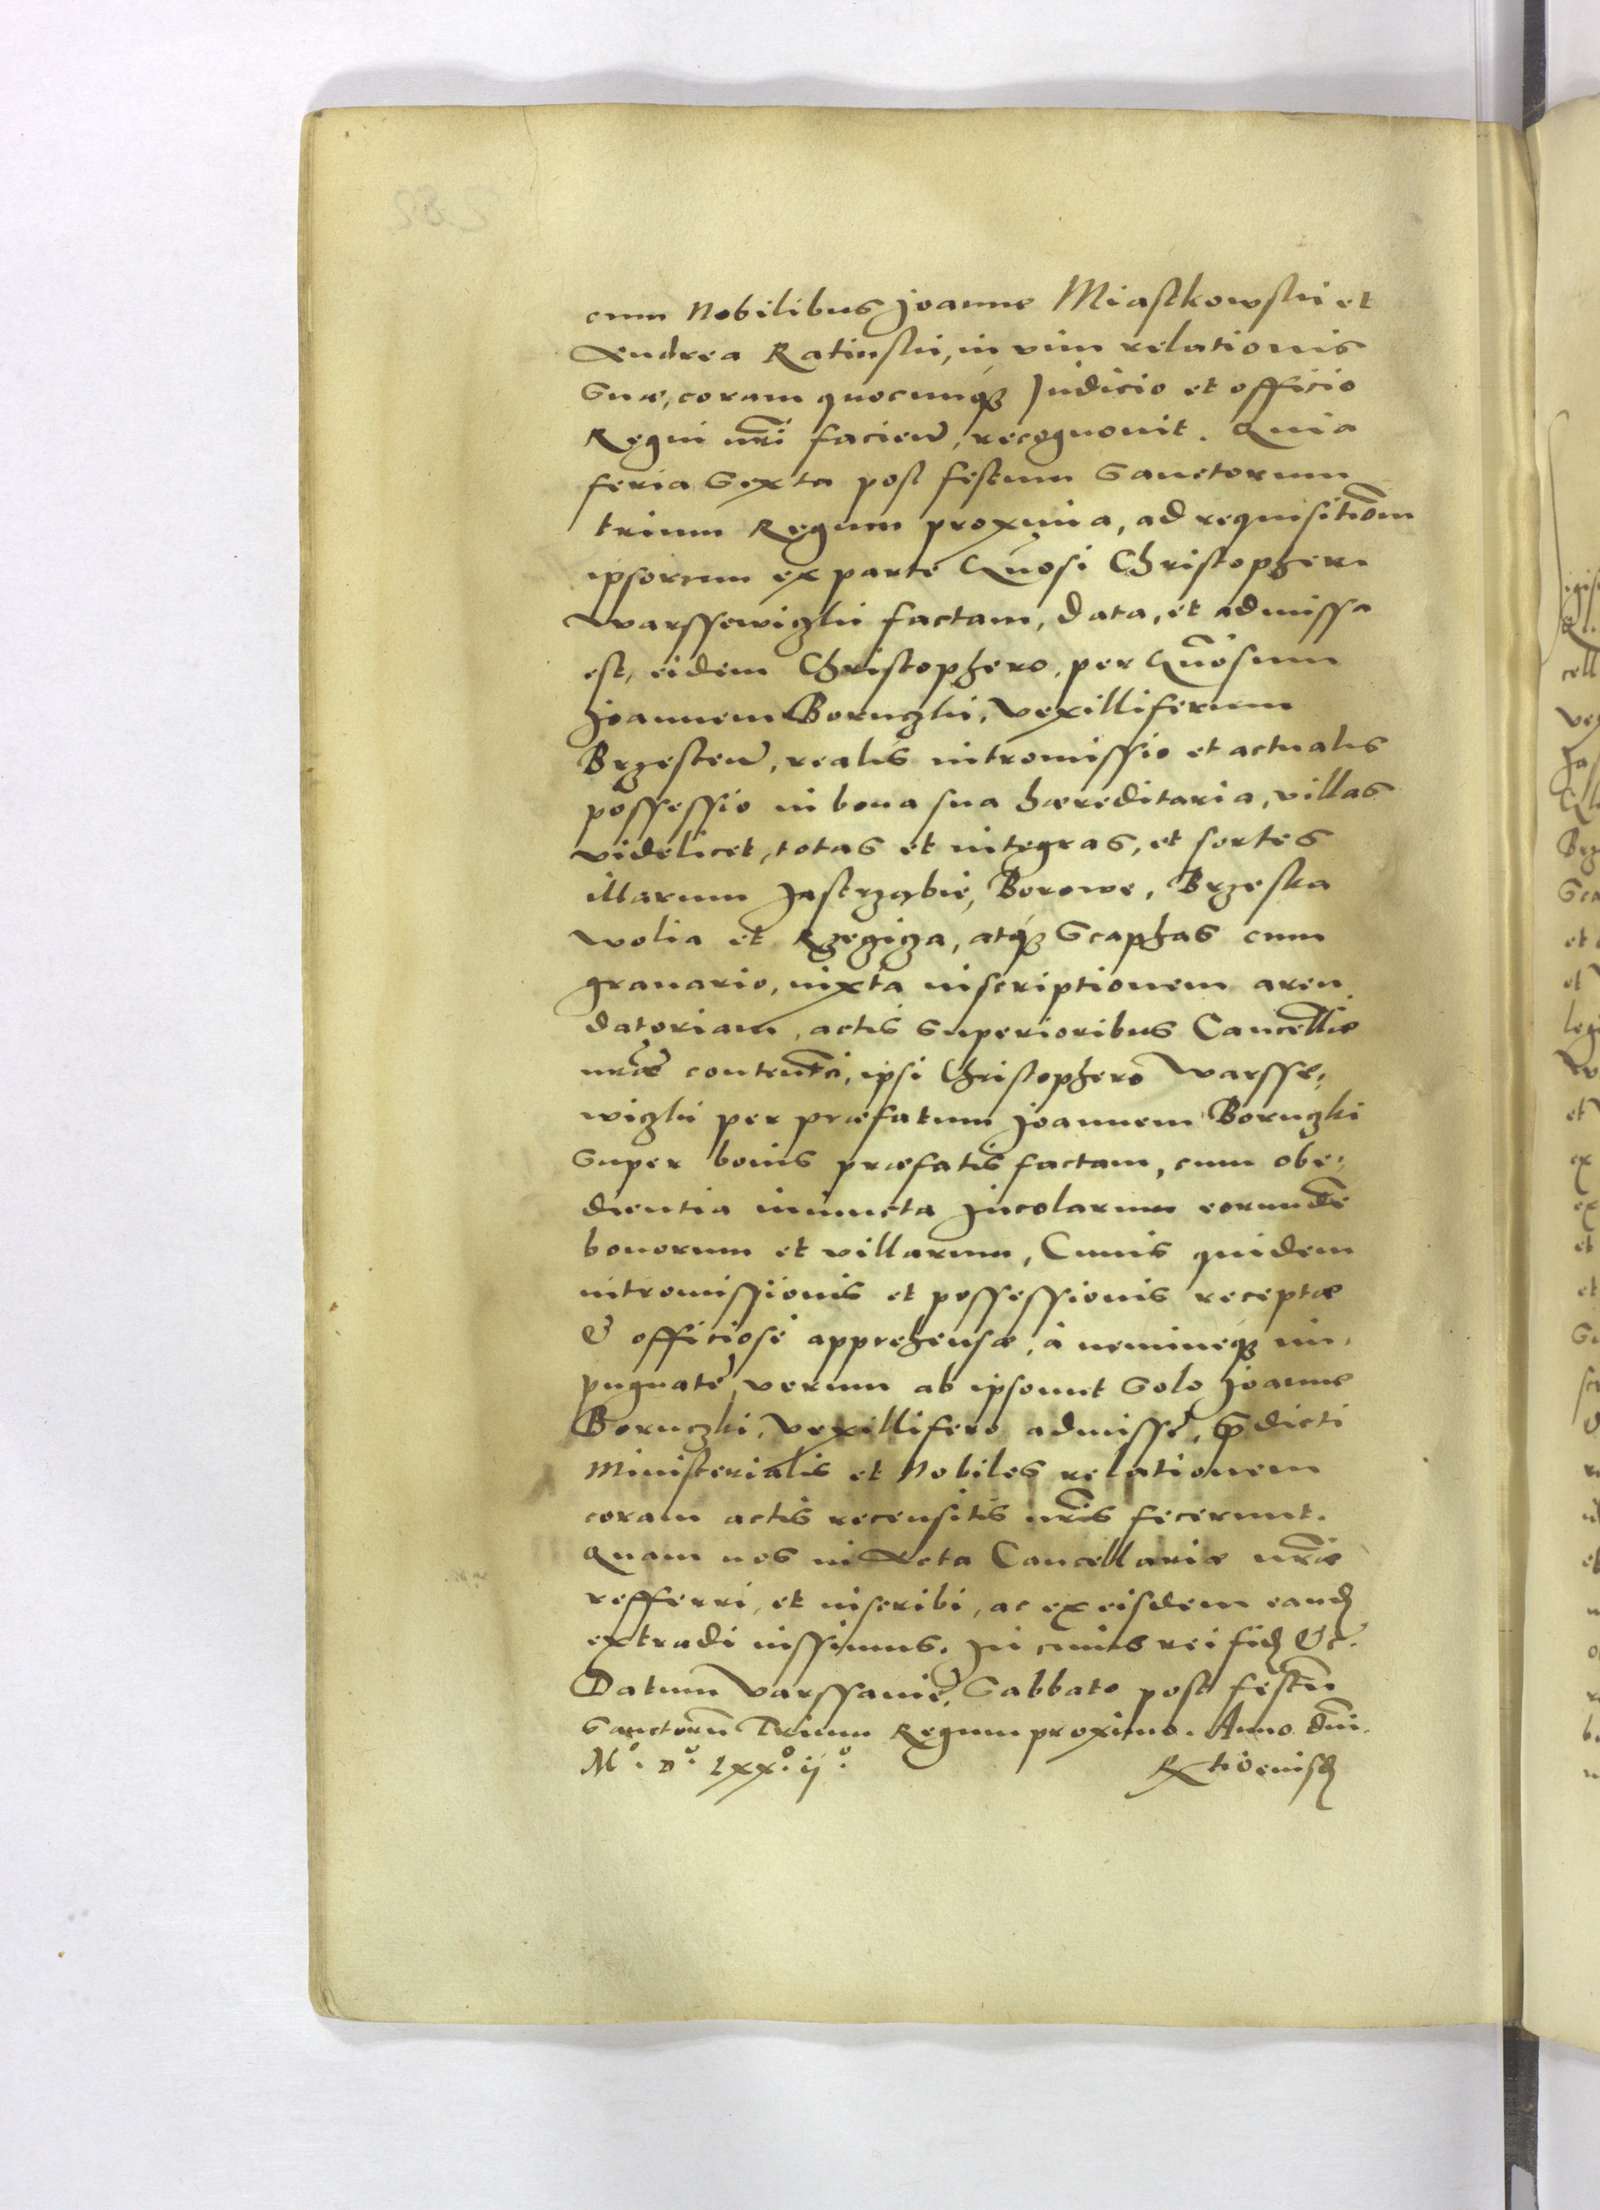 cum Nobilibus Joanne Miastkowskii et
Andrea Ratinskii, in vim relationis
suæ, coram quocunqꝫ Judicio et officio
Regni nri facien, recognovit. Quia
feria Sexta post festum Sanctorum
trium Regum proxima, ad requisitiom
ipsorum ex parte Gnosi Christopheri
Warssewiczkii factam, data, et admissa
est, eidem Christophero, per Gnosum
Joannem Boruczkii, Vexilliferum
Brzesten, realis intromissio et actualis
possessio in bona sua hæreditaria, villas
videlicet, totas et integras, et sortes
illarum Jastrząbie, Borowe, Brzeska
wolia et Rzęgiza, atqꝫ Scaphas cum
granario, iuxta inscriptionem aren
datoriam, actis superioribus Cancellie
nræ contenta, ipsi Christophero Warsse,
wiczkii per præfatum Joannem Boruczki
super bonis præfatis factam, cum obe,
dientia iniuncta Incolarum eorunde
bonorum et villarum, Cuius quidem
intromissionis et possessionis receptæ
& officiosè apprehensæ, à nemineqꝫ im,
pugnate, verum ab ipsomet solo Joanne
Boruczki, Vexillifero admisse, prædicti
Ministerialis et Nobiles relationem
coram actis recensitis nris fecerunt.
quam nos in Acta Cancellariæ nræ
refferri, et inscribi, ac ex eisdem eand
extradi iussimus. In cuius rei fid &c.
Datum Varssavie, Sabbato post festu
Sanctoru Trium Regum proximo. Anno dni.
M°. D°. Lxx°. ij°.